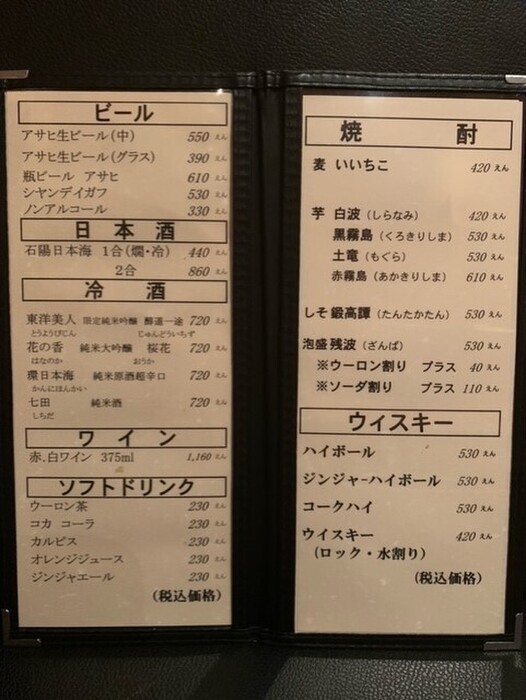 ビール
アサヒ生ビール(中) 550 えん
アサヒ生ビール(グラス) 390 えん
瓶ビール アサヒ 610 えん
シャンディガフ 530 えん
ノンアルコール 330 えん
日本酒
石陽日本海 1合(燗・冷) 440 えん
2合 860 えん
冷酒
東洋美人 限定純米吟醸 醇道一途 720 えん
とうようびじん じゅんどういちず
花の香 純米大吟醸 桜花 720 えん
はなのか おうか
環日本海 純米原酒超辛口 720 えん
かんにほんかい
七田 純米酒 720 えん
しちだ
ワイン
赤.白ワイン 375ml 1,160 えん
ソフトドリンク
ウーロン茶 230 えん
コカ コーラ 230 えん
カルピス 230 えん
オレンジジュース 230 えん
ジンジャエール 230 えん
(税込価格)
焼酎
麦 いいちこ 420 えん
芋 白波(しらなみ) 420 えん
黒霧島(くろきりしま) 530 えん
土竜(もぐら) 530 えん
赤霧島(あかきりしま) 610 えん
しそ 鍛高譚(たんたかたん) 530 えん
泡盛 残波(ざんぱ) 530 えん
※ウーロン割り プラス 40 えん
※ソーダ割り プラス 110 えん
ウィスキー
ハイボール 530 えん
ジンジャ-ハイボール 530 えん
コークハイ 530 えん
ウイスキー 420 えん
(ロック・水割り)
(税込価格)